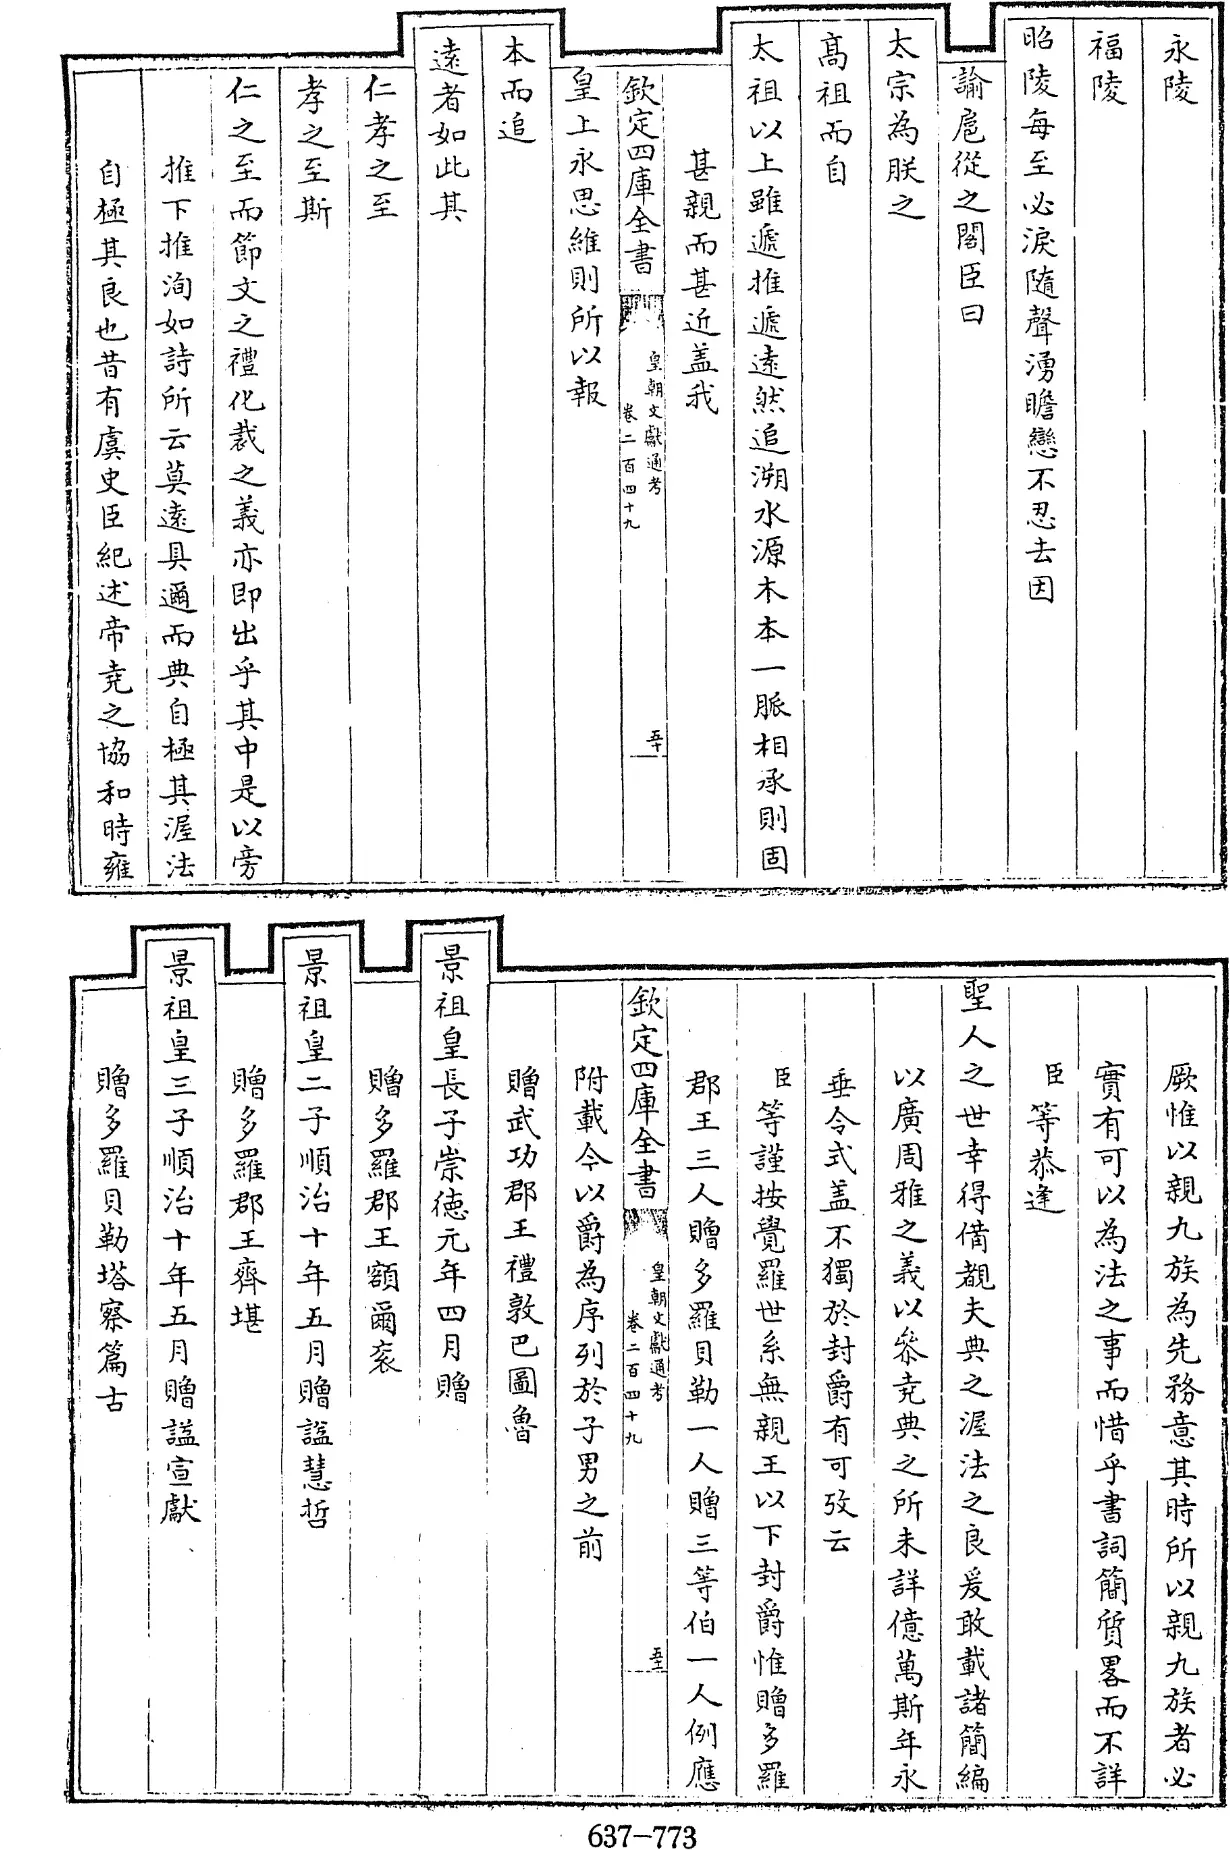 永陵
福陵
昭陵每至必淚隨聲湧瞻戀不忍去因
諭扈從之閣臣曰
太宗為朕之
高祖而自
太祖以上雖遞推遞逺然追溯水源木本一脈相承則固
甚親而甚近盖我
欽定四庫全書
皇朝文獻通考
卷二百四十九
五十
皇上永思維則所以報
本而追
逺者如此其
仁孝之至
孝之至斯
仁之至而節文之禮化裁之義亦即出乎其中是以旁
推下推洵如詩所云莫逺具邇而典自極其渥法
自極其良也昔有虞史臣紀述帝尭之協和時雍
厥惟以親九族為先務意其時所以親九族者必
實有可以為法之事而惜乎書詞簡質畧而不詳
臣等恭逢
聖人之世幸得備覩夫典之渥法之良爰敢載諸簡編
以廣周雅之義以叅尭典之所未詳億萬斯年永
垂令式盖不獨於封爵有可攷云
臣等謹按覺羅世系無親王以下封爵惟贈多羅
郡王三人贈多羅貝勒一人贈三等伯一人例應
欽定四庫全書
皇朝文獻通考
卷二百四十九
五十一
附載今以爵為序列於子男之前
贈武功郡王禮敦巴圖魯
景祖皇長子崇徳元年四月贈
贈多羅郡王額爾衮
景祖皇二子順治十年五月贈諡慧哲
贈多羅郡王齊堪
景祖皇三子順治十年五月贈諡宣獻
贈多羅貝勒塔察篇古
637-773